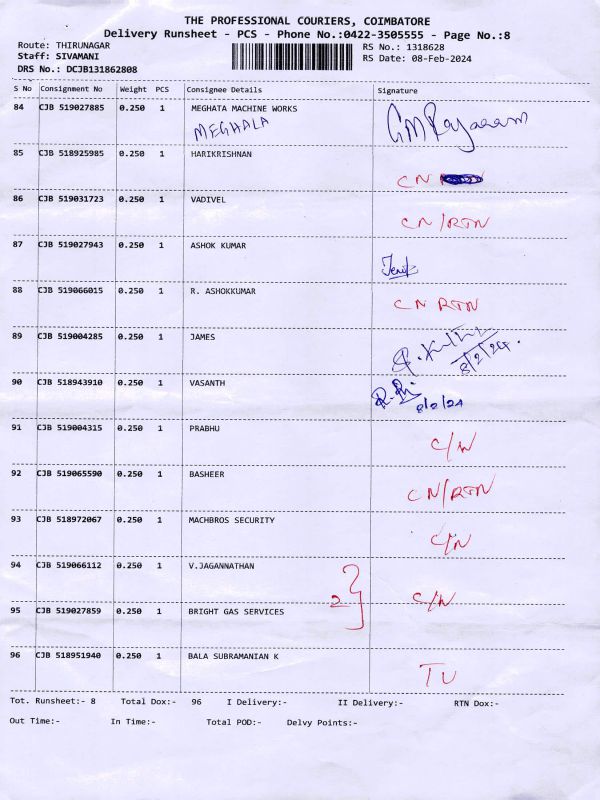 THE PROFESSIONAL COURIERS, COIMBATORE
Delivery Runsheet - PCS - Phone No.:0422-3505555 - Page No.:8
Route: THIRUNAGAR RS No.: 1318628
Staff: SIVAMANI RS Date: 08-Feb-2024
DRS No.: DCJB131862808
S No Consignment No Weight PCS Consignee Details Signature
84 CJB 519027885 0.250 1 MEGHATA MACHINE WORKS
MEGHALA
85 CJB 518925985 0.250 1 HARIKRISHNAN
CN
86 CJB 519031723 0.250 1 VADIVEL
CN/RTN
87 CJB 519027943 0.250 1 ASHOK KUMAR
88 CJB 519066015 0.250 1 R. ASHOKKUMAR
CN RTN
89 CJB 519004285 0.250 1 JAMES
8/2/24.
90 CJB 518943910 0.250 1 VASANTH
8/2/24
91 CJB 519004315 0.250 1 PRABHU
C/N
92 CJB 519065590 0.250 1 BASHEER
CN/RTN
93 CJB 518972067 0.250 1 MACHBROS SECURITY
C/N
94 CJB 519066112 0.250 1 V.JAGANNATHAN
2 C/N
95 CJB 519027859 0.250 1 BRIGHT GAS SERVICES
96 CJB 518951940 0.250 1 BALA SUBRAMANIAN K
TU
Tot. Runsheet:- 8 Total Dox:- 96 I Delivery:- II Delivery:- RTN Dox:-
Out Time:- In Time:- Total POD:- Delvy Points:-